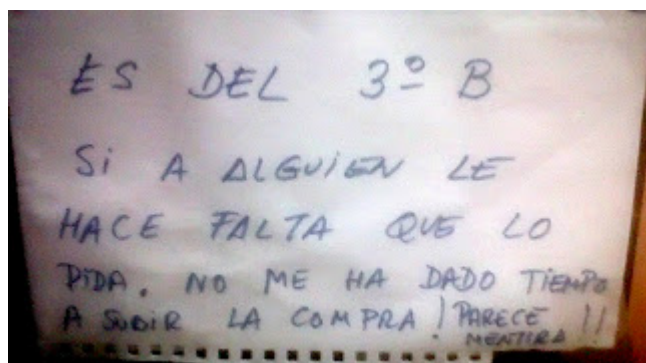 ES DEL 3º B
Si A ALGUiEN LE
HACE FALTA QUE LO
PIDA. NO ME HA DADO TiEMPO
A SUBiR LA COMPRA ! PARECE
MENTiRA !!